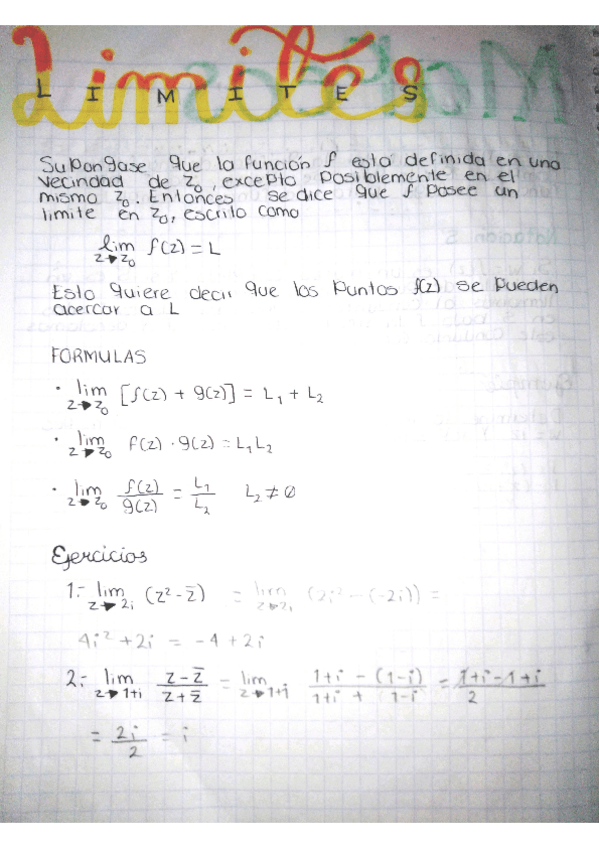 Limites
LIMITES
Supongase que la función f esta definida en una
vecindad de z₀, excepto posiblemente en el
mismo z₀. Entonces se dice que f posee un
limite en z₀, escrito como
lim f(z) = L
z→z₀
Esto quiere decir que los puntos f(z) se pueden
acercar a L
FORMULAS
• lim [f(z) + g(z)] = L₁ + L₂
z→z₀
• lim f(z) · g(z) = L₁L₂
z→z₀
• lim f(z)/g(z) = L₁/L₂ L₂ ≠ 0
z→z₀
Ejercicios
1.- lim (z² - z̅) = lim (2i² - (-2i)) =
z→2i z→2i
4i² + 2i = -4 + 2i
2.- lim z - z̅ / z + z̅ = lim 1+i - (1-i) / 1+i + 1-i = 1+i-1+i / 2
z→1+i z→1+i
= 2i/2 = i